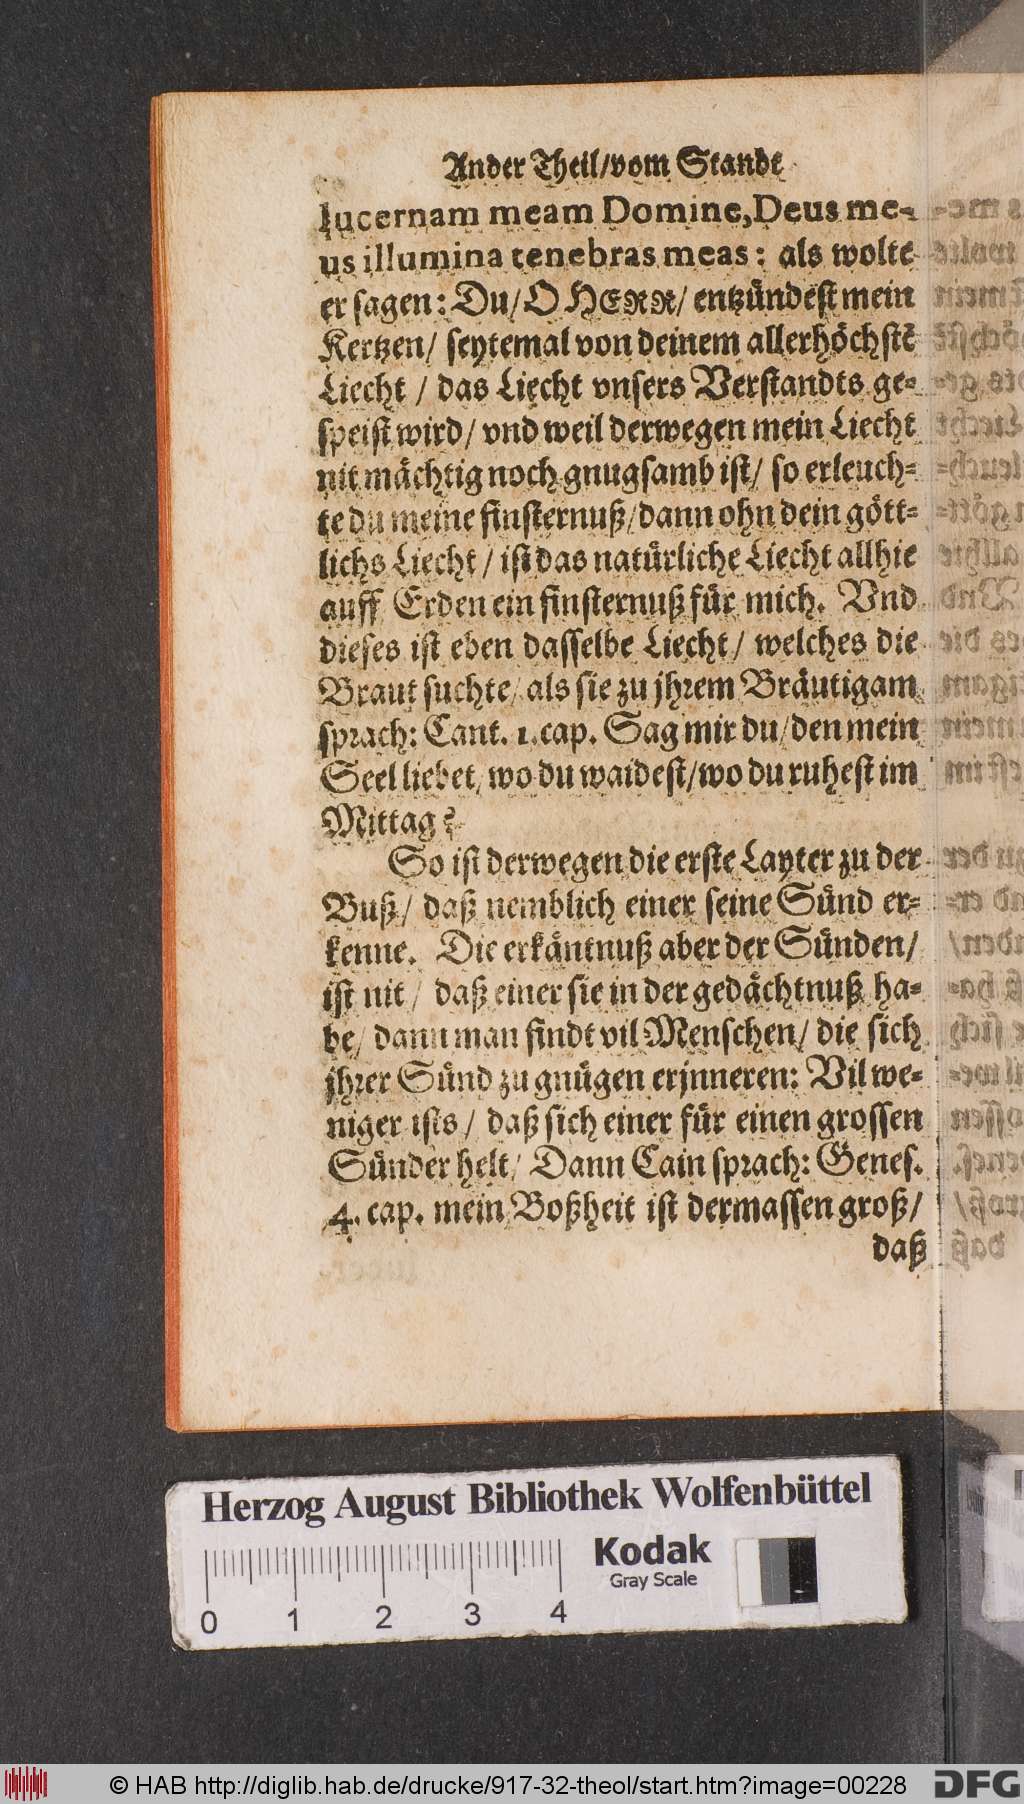 Ander Theil/vom Standt
lucernam meam Domine, Deus me-
us illumina tenebras meas: als wolte
er sagen: Du/ O HERR/ entzündest mein
Kertzen/ seytemal von deinem allerhöchstē
Liecht / das Liecht vnsers Verstandts ge-
speist wird/ vnd weil derwegen mein Liecht
nit mächtig noch gnugsamb ist/ so erleuch-
te du meine finsternuß/dann ohn dein gött-
lichs Liecht / ist das natürliche Liecht allhie
auff Erden ein finsternuß für mich. Vnd
dieses ist eben dasselbe Liecht/ welches die
Braut suchte/ als sie zu jhrem Bräutigam
sprach: Cant. 1. cap. Sag mir du/den mein
Seel liebet/ wo du waidest/wo du ruhest im
Mittag?
So ist derwegen die erste Layter zu der
Buß/ daß nemblich einer seine Sünd er-
kenne. Die erkäntnuß aber der Sünden/
ist nit / daß einer sie in der gedächtnuß ha-
be/ dann man findt vil Menschen/ die sich
jhrer Sünd zu gnügen erjnneren: Vil we-
niger ists / daß sich einer für einen grossen
Sünder helt/ Dann Cain sprach: Genes.
4. cap. mein Boßheit ist dermassen groß/
daß
Herzog August Bibliothek Wolfenbüttel
Kodak
Gray Scale
0 1 2 3 4
© HAB http://diglib.hab.de/drucke/917-32-theol/start.htm?image=00228
DFG